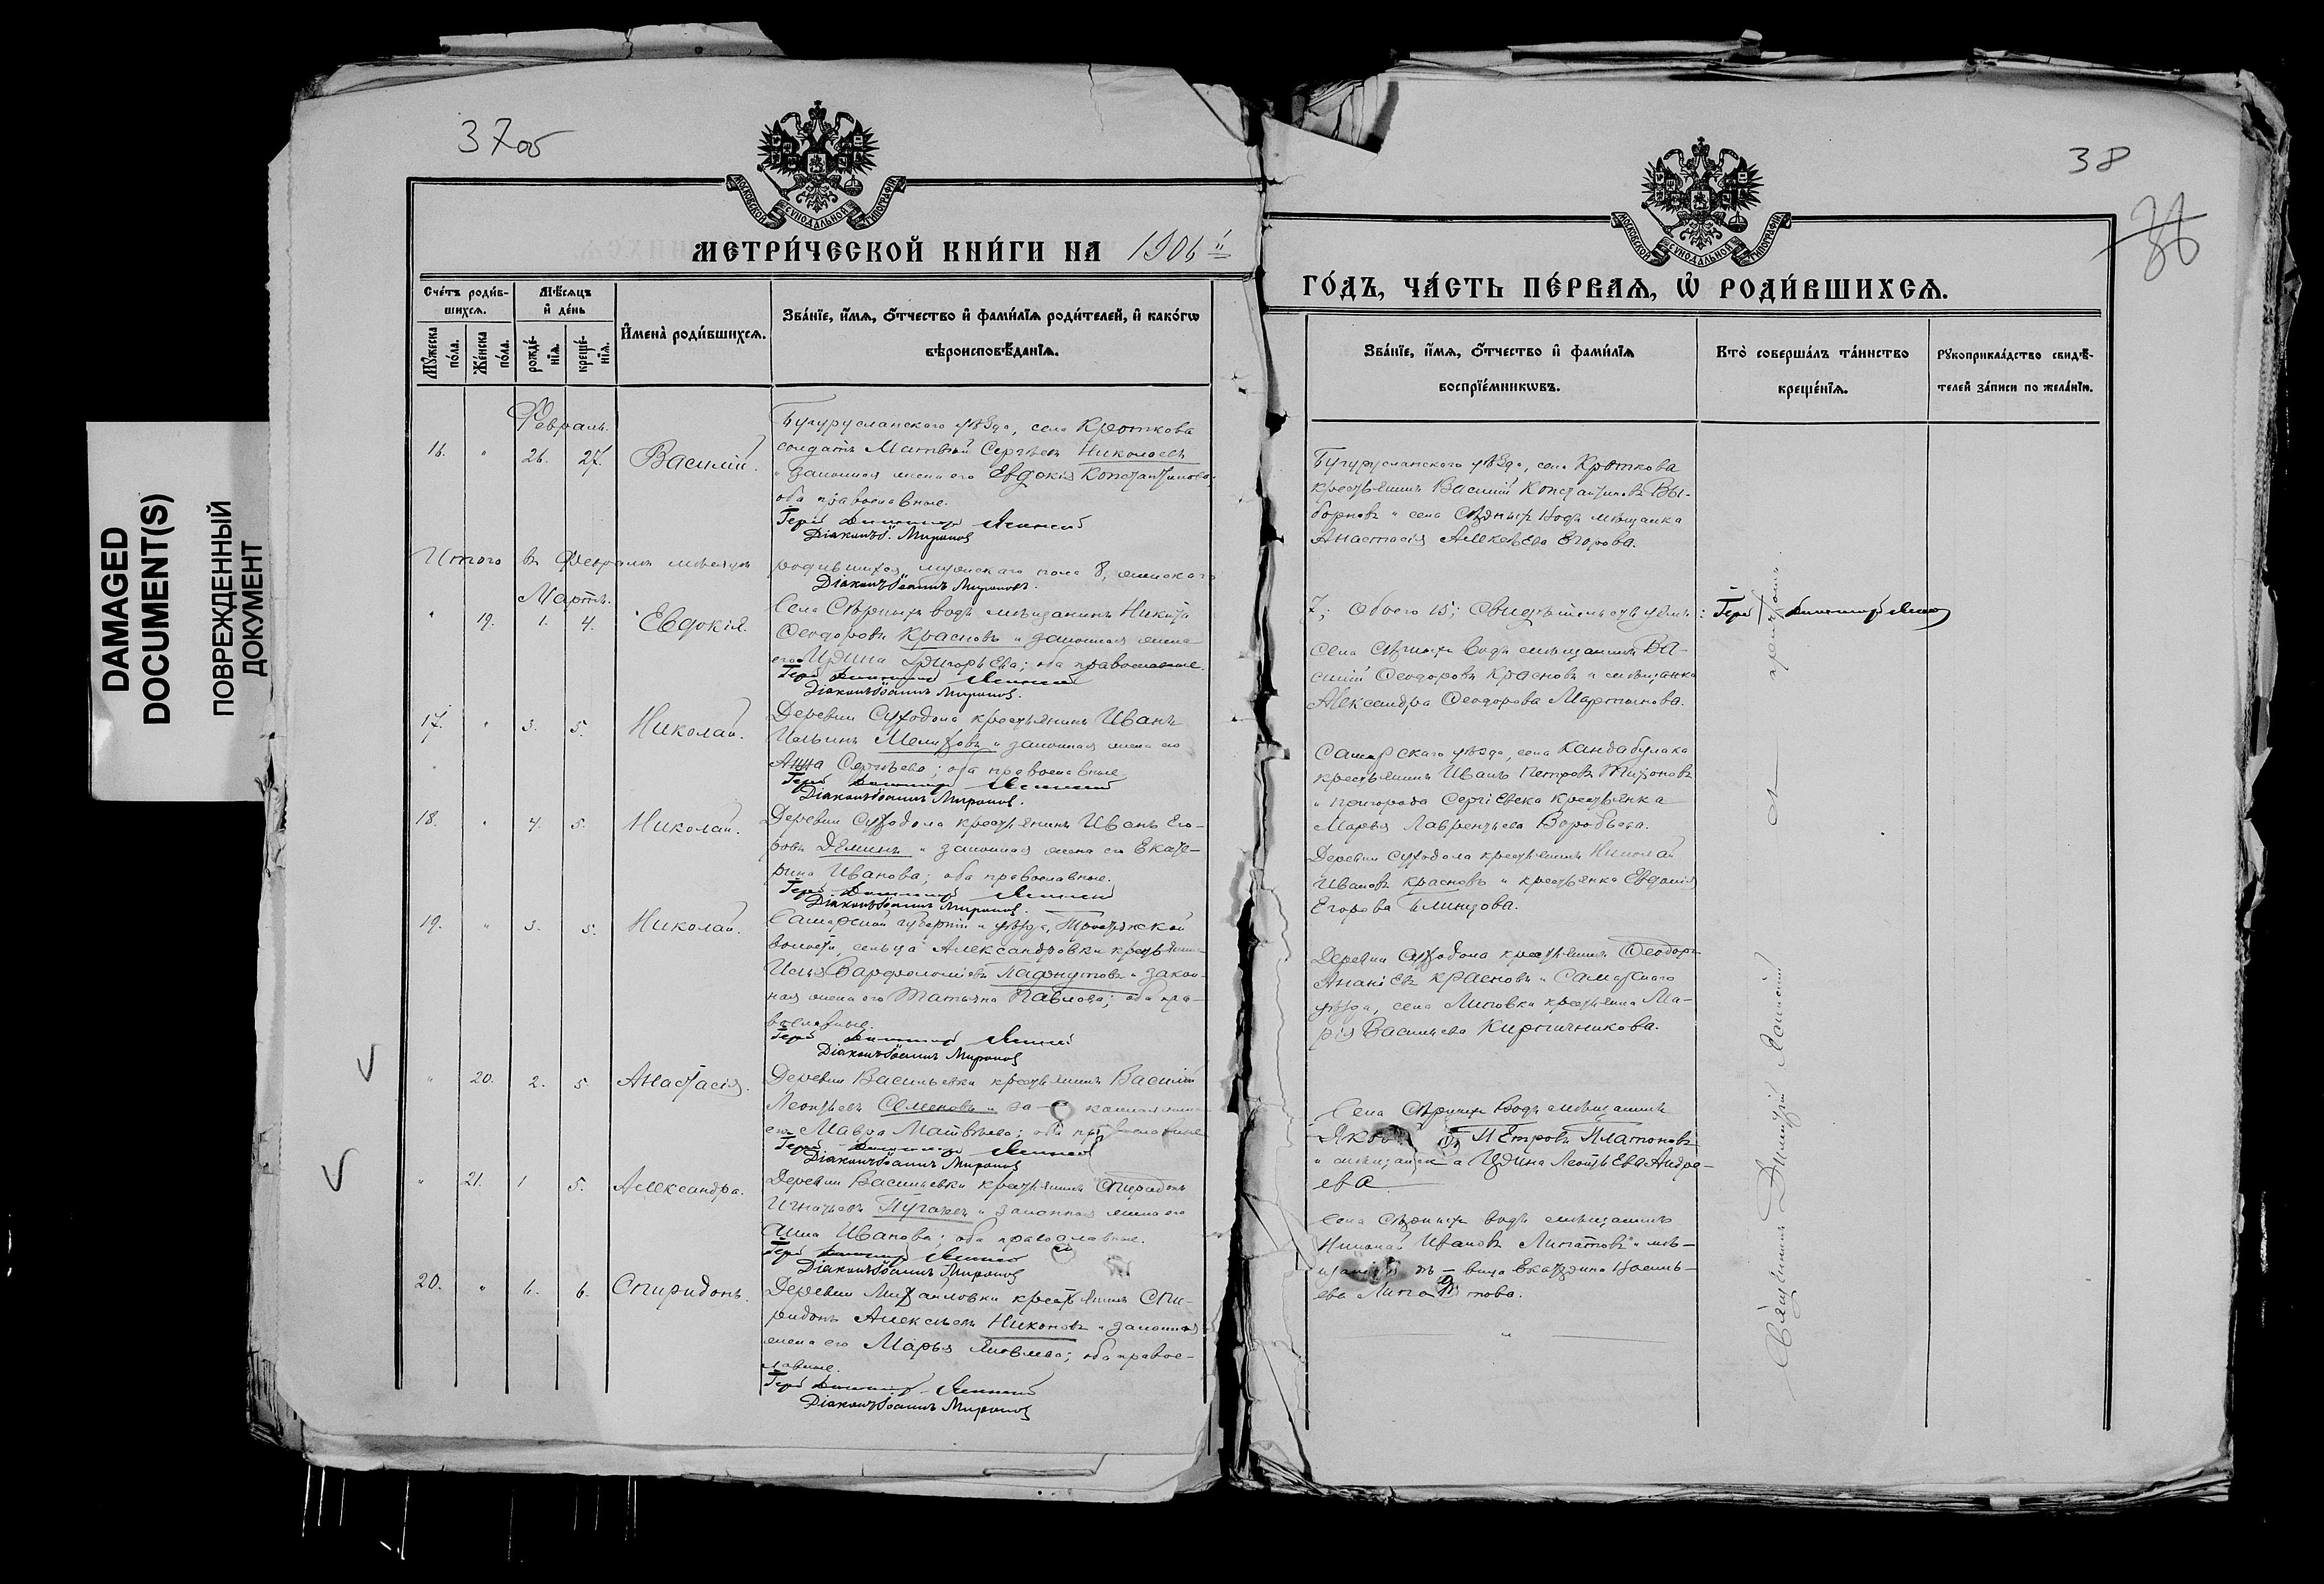 DAMAGED
DOCUMENT(S)
ПОВРЕЖДЕННЫЙ
ДОКУМЕНТ
37об
МОСКОВСКОЙ СУНОДАЛЬНОЙ ТИПОГРАФІИ
МЕТРИ́ЧЕСКОЙ КНИ́ГИ НА 1906 й
Сче́тъ роди́в-
шихсѧ.
Мѣ́сѧцъ
и҆ де́нь
Му́жеска
по́ла.
Же́нска
по́ла.
рожде́-
нїѧ.
креще́-
нїѧ.
И҆мена̀ роди́вшихсѧ.
Зва́нїе, и҆́мѧ, ѻ҆́тчество и҆ фами́лїѧ роди́телей, и҆ како́гѡ
вѣроисповѣ́данїѧ.
Февраль.
16. " 26. 27. Василій.
Бугурусланскаго уѣзда, села Кроткова
солдатъ Матвѣй Сергѣевъ Николаевъ
и законная жена его Евдокія Константинова,
оба православные.
Діаконъ І. Мироновъ
Итого въ Февралѣ мѣсяцѣ родившихся мужскаго пола 8, женскаго
Діаконъ Іоаннъ Мироновъ.
Мартъ.
" 19. 1. 4. Евдокія.
Села Сѣрныхъ водъ мѣщанинъ Никита
Ѳеодоровъ Красновъ и законная жена
его Ирина Григорьева; оба православные.
Діаконъ Іоаннъ Мироновъ.
17. " 3. 5. Николай.
Деревни Суходола крестьянинъ Иванъ
Ильинъ и законная жена его
Анна Сергѣева; оба православные
Діаконъ Іоаннъ Мироновъ.
18. " 4. 5. Николай.
Деревни Суходола крестьянинъ Иванъ Его-
ровъ Деминъ и законная жена его Екате-
рина Иванова; оба православные.
Діаконъ Іоаннъ Мироновъ.
19. " 3. 5. Николай.
Самарской губерніи и уѣзда,
волости, сельца Александровки крестьянинъ
Илья Варѳоломѣевъ Пафнутовъ и закон-
ная жена его Татьяна Павлова; оба пра-
вославные.
Діаконъ Іоаннъ Мироновъ
" 20. 2. 5. Анастасія.
Деревни Васильевки крестьянинъ Василій
Леонтьевъ Семеновъ и за- конная жена
его Мавра Матвѣева; оба православные
Діаконъ Іоаннъ Мироновъ
" 21. 1 5. Александра.
Деревни Васильевки крестьянинъ Спиридонъ
Игнатьевъ Пугачевъ и законная жена его
Анна Иванова; оба православные.
Діаконъ Іоаннъ Мироновъ
20. " 6. 6. Спиридонъ.
Деревни Михайловки крестьянинъ Спи-
ридонъ Алексѣевъ Никоновъ и законная
жена его Марья Яковлева; оба правос-
лавные.
Діаконъ Іоаннъ Мироновъ
38
МОСКОВСКОЙ СУНОДАЛЬНОЙ ТИПОГРАФІИ
ГО́ДЪ, ЧА́СТЬ ПЕ́РВАѦ, Ѡ҆ РОДИ́ВШИХСѦ.
Зва́нїе, и҆́мѧ, ѻ҆́тчество и҆ фами́лїѧ
воспрїе́мникѡвъ.
Кто̀ соверша́лъ та́инство
креще́нїѧ.
Рꙋкоприкла́дство свидѣ́-
телей за́писи по жела́нїю.
Бугурусланскаго уѣзда, села Кроткова
крестьянинъ Василій Константиновъ Вы-
борновъ и села Сѣрныхъ водъ мѣщанка
Анастасія Алексѣева Егорова.
7; Обоего 15; Свидѣтельствуемъ:
Села Сѣрныхъ водъ мѣщанинъ Ва-
силій Ѳеодоровъ Красновъ и мѣщанка
Александра Ѳеодорова Мартынова.
Самарскаго уѣзда, села Кандабулака
крестьянинъ Иванъ Петровъ Тихоновъ
и пригорода Сергіевска крестьянка
Марья Лаврентьева Воробьева.
Деревни Суходола крестьянинъ Николай
Ивановъ Красновъ и крестьянка Евдокія
Егорова
Деревни Суходола крестьянинъ Ѳеодоръ
Ананіевъ Красновъ и Самарскаго
уѣзда, села Липовки крестьянка Ма-
рія Васильева Кирпичникова.
Села Сѣрныхъ водъ мѣщанинъ
Яковъ Петровъ Платоновъ
и мѣщанка Ирина Леонтьева Андре-
ева
Села Сѣрныхъ водъ мѣщанинъ
Николай Ивановъ Липатовъ и мѣ-
щанская дѣ- вица Екатерина Василь-
ева Липатова.
"
Священникъ Димитрій